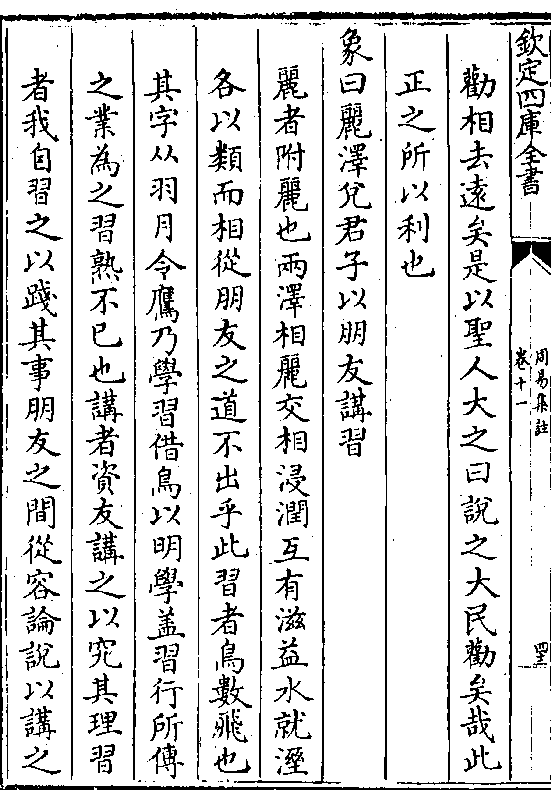 欽定四庫全書
周易集註
卷十一
勸相去遠矣是以聖人大之曰說之大民勸矣哉此
正之所以利也
象曰麗澤兌君子以朋友講習
麗者附麗也兩澤相麗交相浸潤互有滋益水就溼
各以類而相從朋友之道不出乎此習者鳥數飛也
其字从羽月令鷹乃學習借鳥以明學盖習行所傳
之業為之習熟不已也講者資友講之以究其理習
者我自習之以踐其事朋友之間從容論說以講之